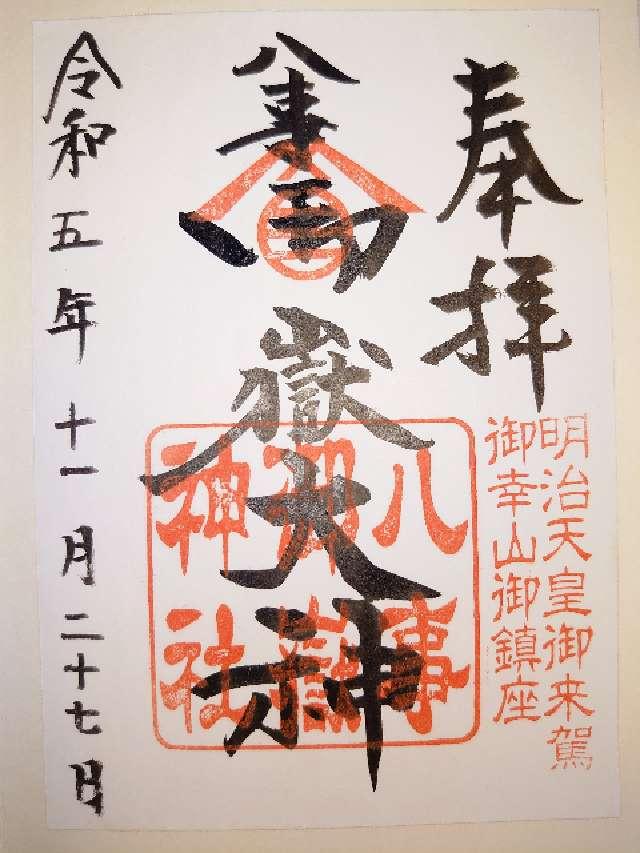 奉拝
明治天皇御来駕
御幸山御鎮座
八事御嶽大神
八事
御嶽
神社
令和五年十一月二十七日